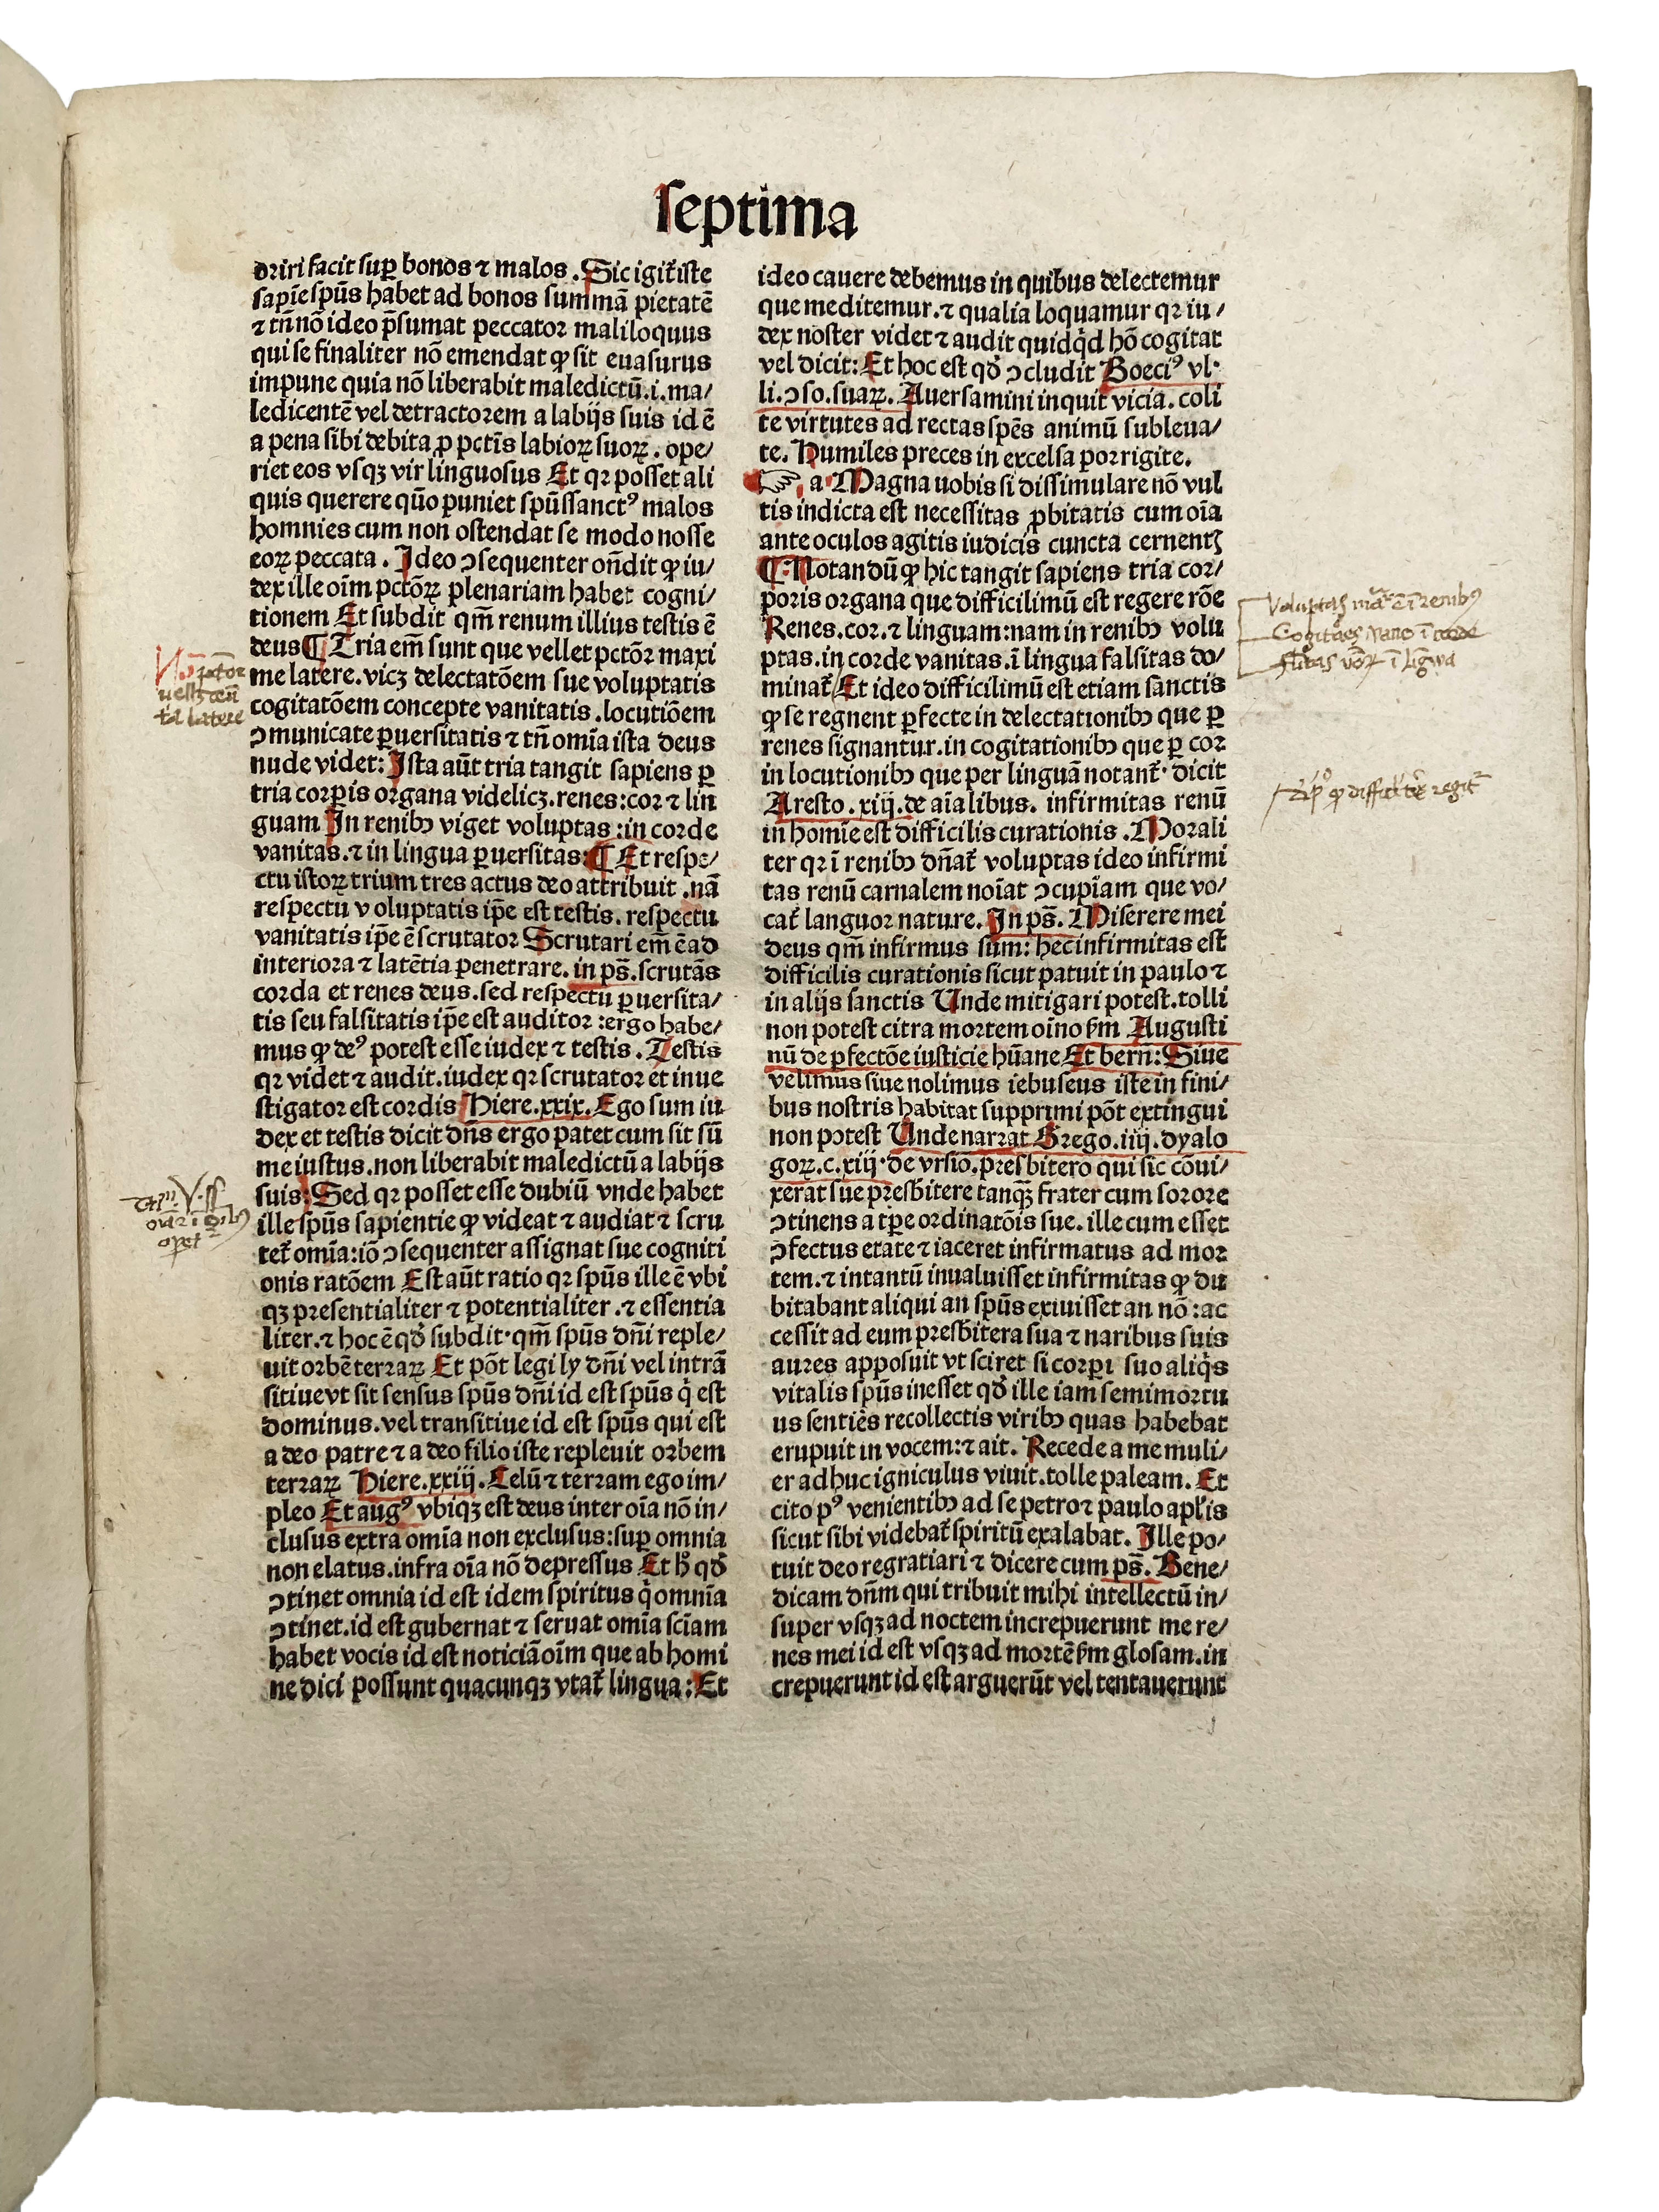 septima
oriri facit suꝑ bonos ⁊ malos . Sic igit̃ iste
sapīe spūs habet ad bonos summā pietatē
⁊ tn̄ nō ideo p̄sumat peccator maliloquus
qui se finaliter nō emendat ꝙ sit euasurus
impune quia nō liberabit maledictū.i.ma/
ledicentē vel detractorem a labijs suis id ē
a pena sibi debita ꝓ pctīs labioꝝ suoꝝ . ope/
riet eos vsqꝫ vir linguosus Et qꝛ posset ali
quis querere quō puniet spūssanctꝰ malos
homnies cum non ostendat se modo nosse
eoꝝ peccata . Ideo ↄsequenter on̄dit ꝙ iu/
dex ille oīm pctōꝝ plenariam habet cogni/
tionem Et subdit qm̄ renum illius testis ē
deus ¶ Tria em̄ sunt que vellet pctōr maxi
me latere . vicꝫ delectatōem sue voluptatis
cogitatōem concepte vanitatis . locutiōem
ↄmunicate ꝑuersitatis ⁊ tn̄ omīa ista deus
nude videt: Ista aūt tria tangit sapiens ꝑ
tria corꝑis organa videlicꝫ . renes: cor ⁊ lin
guam In renibꝫ viget voluptas : in corde
vanitas . ⁊ in lingua ꝑuersitas: ¶ Et respe/
ctu istoꝝ trium tres actus deo attribuit . nā
respectu v oluptatis ip̄e est testis . respectu
vanitatis ip̄e ē scrutator Scrutari em̄ ē ad
interiora ⁊ latētia penetrare . in ps̄. scrutās
corda et renes deus . sed respectu ꝑuersita/
tis seu falsitatis ip̄e est auditor : ergo habe/
mus ꝙ deꝰ potest esse iudex ⁊ testis . Testis
qꝛ videt ⁊ audit . iudex qꝛ scrutator et inue
stigator est cordis Hiere. xxix. Ego sum iu
dex et testis dicit dn̄s ergo patet cum sit sū
me iustus . non liberabit maledictū a labijs
suis: Sed qꝛ posset esse dubiū vnde habet
ille spūs sapientie ꝙ videat ⁊ audiat ⁊ scru
tet̃ omīa: iō ↄsequenter assignat sue cogniti
onis ratōem Est aūt ratio qꝛ spūs ille ē vbi
qꝫ presentialiter ⁊ potentialiter . ⁊ essentia
liter . ⁊ hoc ē qđ subdit . qm̄ spūs dn̄i reple/
uit orbē terraꝝ Et pōt legi ly dn̄i vel intrā
sitiue vt sit sensus spūs dn̄i id est spūs q̇ est
dominus . vel transitiue id est spūs qui est
a deo patre ⁊ a deo filio iste repleuit orbem
terraꝝ Hiere. xxiij. Celū ⁊ terram ego im/
pleo Et augꝰ vbiqꝫ est deus inter oīa nō in/
clusus extra omīa non exclusus: suꝑ omnia
non elatus . infra oīa nō depressus Et ħ qđ
ↄtinet omnia id est idem spiritus q̇ omnīa
ↄtinet . id est gubernat ⁊ seruat omīa scīam
habet vocis id est noticiā oīm que ab homi
ne dici possunt quacunqꝫ vtat̃ lingua: Et
ideo cauere debemus in quibus delectemur
que meditemur . ⁊ qualia loquamur qꝛ iu/
dex noster videt ⁊ audit quidq̇d hō cogitat
vel dicit: Et hoc est qđ ↄcludit Boeciꝰ vl.
li. ↄso. suaꝝ. Auersamini inquit vicia. coli
te virtutes ad rectas spēs animū subleua/
te. Humiles preces in excelsa porrigite.
☞ a Magna uobis si dissimulare nō vul
tis indicta est necessitas ꝓbitatis cum oīa
ante oculos agitis iudicis cuncta cernentꝫ
¶ Notandū ꝙ hic tangit sapiens tria cor/
poris organa que difficilimū est regere rōe
Renes . cor . ⁊ linguam: nam in renibꝫ volu
ptas . in corde vanitas . ī lingua falsitas do/
minat̃ Et ideo difficilimū est etiam sanctis
ꝙ se regnent ꝑfecte in delectationibꝫ que ꝑ
renes signantur . in cogitationibꝫ que ꝑ cor
in locutionibꝫ que per linguā notant̃ . dicit
Aresto. xiij. de aīalibus. infirmitas renū
in homīe est difficilis curationis . Morali
ter qꝛ ī renibꝫ dn̄at̃ voluptas ideo infirmi
tas renū carnalem noīat ↄcupīam que vo/
cat̃ languor nature. In ps̄. Miserere mei
deus qm̄ infirmus sum: hec infirmitas est
difficilis curationis sicut patuit in paulo ⁊
in alijs sanctis Unde mitigari potest . tolli
non potest citra mortem oīno fm̄ Augusti
nū de ꝑfectōe iusticie hūane Et bern̄: Siue
velimus siue nolimus iebuseus iste in fini/
bus nostris habitat supprimi pōt extingui
non potest Unde narrat Grego. iiij. dyalo
goꝝ. c. xiij. de vrsio. presbitero qui sic cōui/
xerat sue presƀitere tanqꝫ̄ frater cum sorore
ↄtinens a tꝑe ordinatōis sue . ille cum esset
ↄfectus etate ⁊ iaceret infirmatus ad mor
tem . ⁊ intantū inualuisset infirmitas ꝙ du
bitabant aliqui an spūs exiuisset an nō : ac
cessit ad eum presƀitera sua ⁊ naribus suis
aures apposuit vt sciret si corꝑi suo aliq̇s
vitalis spūs inesset qđ ille iam semimortu
us sentiēs recollectis viribꝫ quas habebat
erupuit in vocem: ⁊ ait. Recede a me muli/
er adhuc igniculus viuit . tolle paleam. Et
cito pꝰ venientibꝫ ad se petro ⁊ paulo apl̄is
sicut sibi videbat̃ spiritū exalabat. Ille po/
tuit deo regratiari ⁊ dicere cum ps̄. Bene/
dicam dn̄m qui tribuit mihi intellectū in/
super vsqꝫ ad noctem increpuerunt me re/
nes mei id est vsqꝫ ad mortē fm̄ glosam . in
crepuerunt id est arguerūt vel tentauerunt